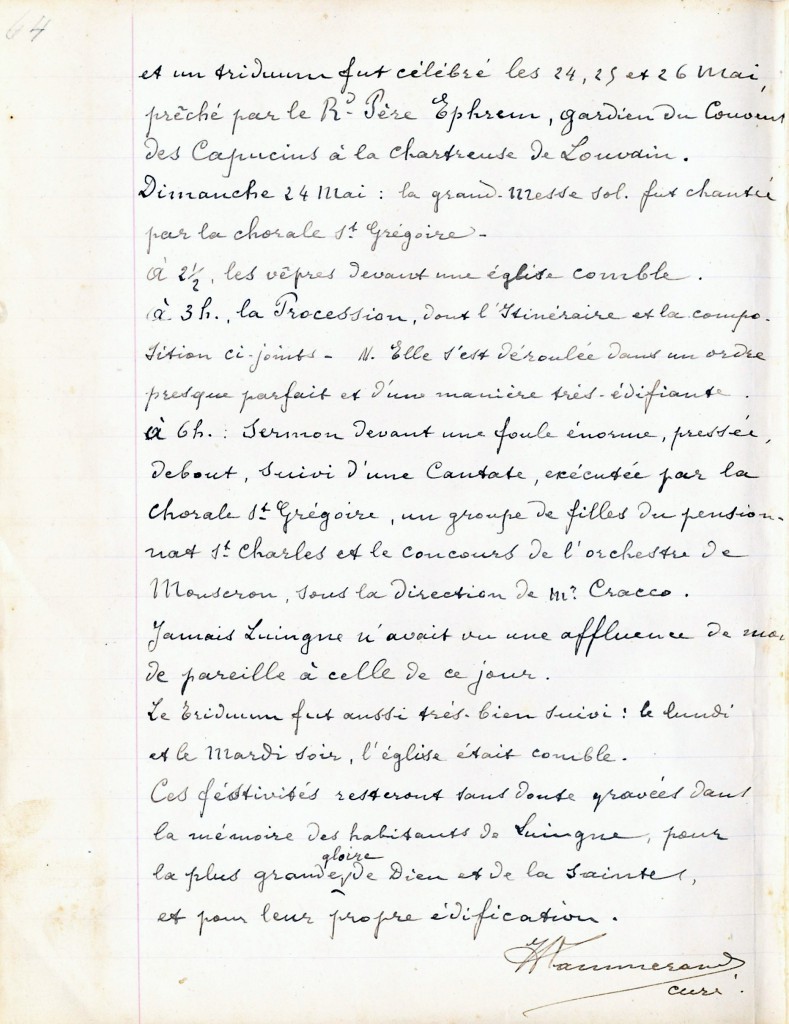 64
et un triduum fut célébré les 24, 25 et 26 Mai,
prêché par le Rd. Père Ephrem, gardien du Couvent
des Capucins à la Chartreuse de Louvain.
Dimanche 24 Mai : la grand-Messe sol. fut chantée
par la chorale St. Grégoire -
à 2½, les vêpres devant une église comble.
à 3h., la Procession, dont l'Itinéraire et la compo-
sition ci-joints - N. Elle s'est déroulée dans un ordre
presque parfait et d'une manière très-édifiante.
à 6h. : Sermon devant une foule énorme, pressée,
debout, suivi d'une Cantate, exécutée par la
chorale St. Grégoire, un groupe de filles du pension-
nat St. Charles et le concours de l'orchestre de
Mouscron, sous la direction de Mr. Cracco.
Jamais Luingne n'avait vu une affluence de mon
de pareille à celle de ce jour.
Le Triduum fut aussi très-bien suivi : le lundi
et le Mardi soir, l'église était comble.
Ces festivités resteront sans doute gravées dans
la mémoire des habitants de Luingne, pour
la plus grande gloire de Dieu et de la Sainte,
et pour leur propre édification.
curé.